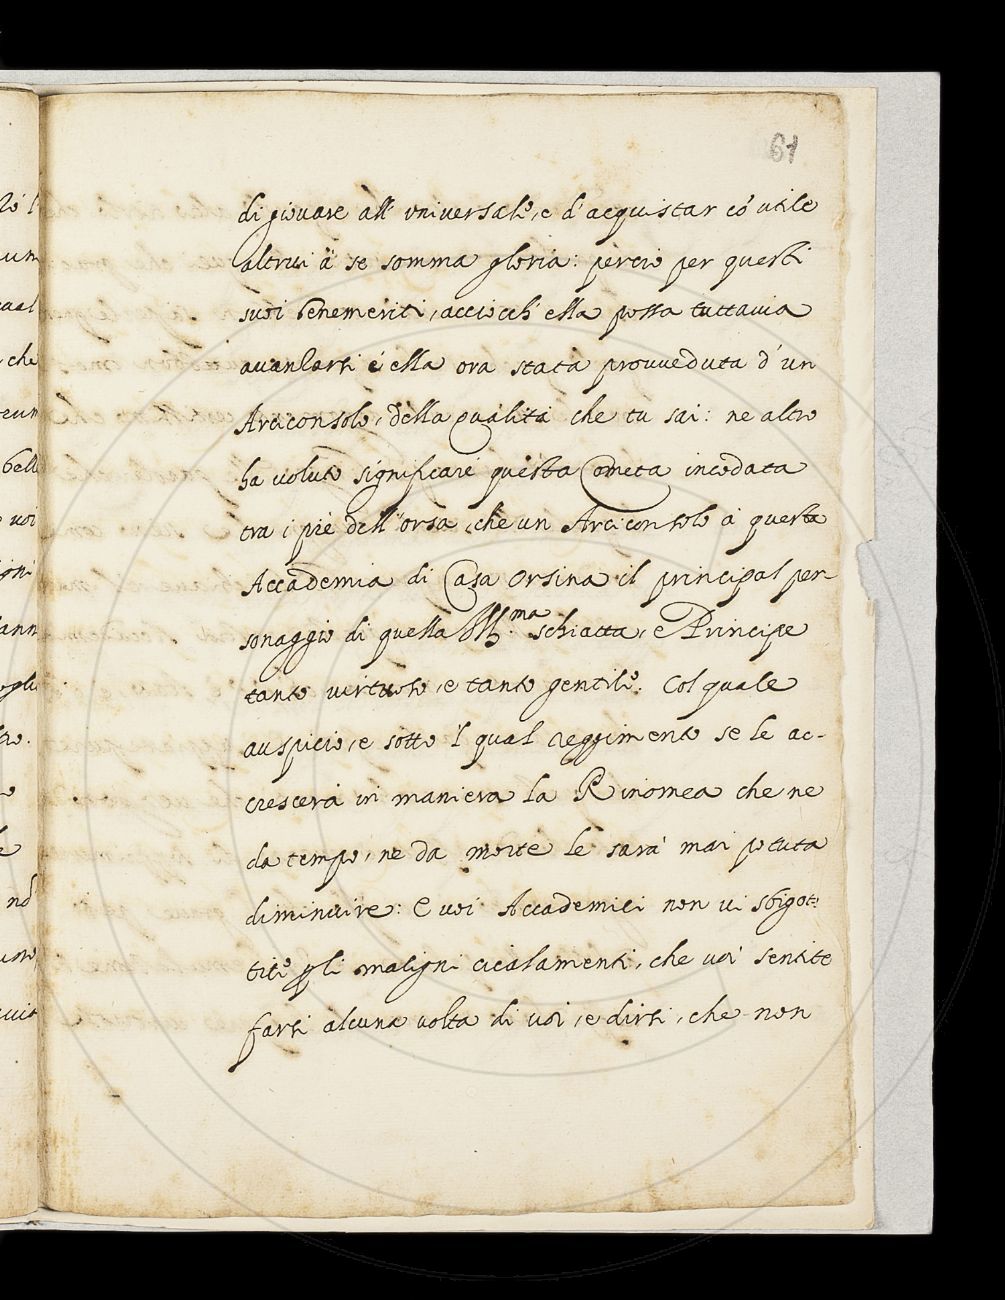 61
di giovare all' vniversale, e d'acquistar cò utile
altrui à se somma gloria: perciò per questi
suoi benemeriti, acciocch' ella possa tuttavia
avanzarsi é ella ora stata provveduta d'un
Arciconsolo, della qualità che tu sai: ne altro
ha voluto significare questa Cometa incodata
tra i piè dell'orsa, che un Arciconsolo à questa
Accademia di Casa Orsina il principal per-
sonaggio di quella Ill.ma schiatta, e Principe
tanto virtuoso, e tanto gentile. Col quale
auspicio, e sotto 'l qual reggimento se le ac-
crescerà in maniera la Rinomea che ne
da tempo, ne da morte le sarà mai potuta
diminuire: E voi Accademici non vi sbigot-
tite pli maligni cicalamenti, che voi sentite
farsi alcuna volta di voi, e dirsi, che non
che
bell
voi